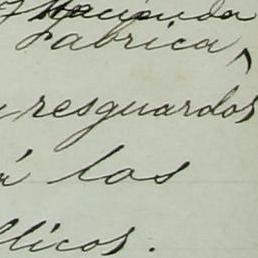 Hacienda
Fabrica,
resguardos
á los